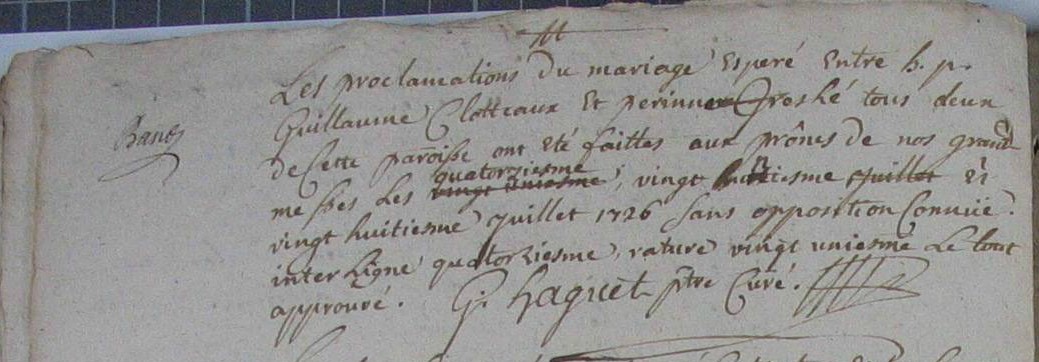 Les proclamations du mariage esperé entre h. p.
Guillaume Clotteaux et perinne Groshé tous deux
Bans
de cette paroisse ont eté faittes aux prônes de nos grand
messes les quatorziesme vingt uniesme, vingt juillet et
vingt huitiesme juillet 1726 sans opposition connüe.
interligne quatorziesme, rature vingt uniesme le tout
approuvé. G. haguet ptre Curé.